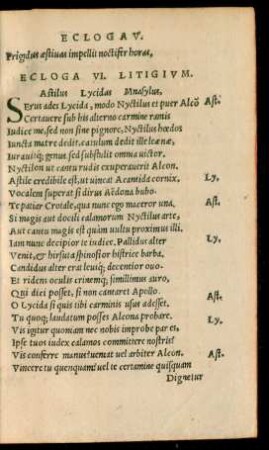 ECLOGA V.
Frigidus æstiuas impellit noctifer horas,
ECLOGA VI. LITIGIVM.
Astilus Lycidas Mnasylus.
Serus ades Lycida, modo Nyctilus et puer Alcõ Ast.
Certauere sub his alterno carmine ramis
Iudice me, sed non sine pignore, Nyctilus hœdos
Iuncta matre dedit. catulum dedit ille leænæ,
Iurauitq́; genus. sed sustulit omnia victor.
Nyctilon ut cantu rudis exuperauerit Alcon.
Astile credibile est, ut uincat Acantida cornix, Ly.
Vocalem superat si dirus Aëdona bubo.
Te patier Crotale, qua nunc ego maceror una, Ast.
Si magis aut docili calamorum Nyctilus arte,
Aut cantu magis est quàm uultu proximus illi.
Iam nunc decipior te iudice. Pallidus alter Ly.
Venit, & hirsuta spinosior histrice barba,
Candidus alter erat leuiq́; decentior ouo.
Et ridens oculis crinemq́; simillimus auro,
Qui dici posset, si non cantaret Apollo.
O Lycida si quis tibi carminis usus adesset, Ast.
Tu quoq; laudatum posses Alcona probare.
Vis igitur quoniam nec nobis improbe par es, Ly.
Ipse tuos iudex calamos committere nostris?
Vis conferre manus? ueniat uel arbiter Alcon. Ast.
Vincere tu quenquam? uel te certamine quisquam
Dignetur